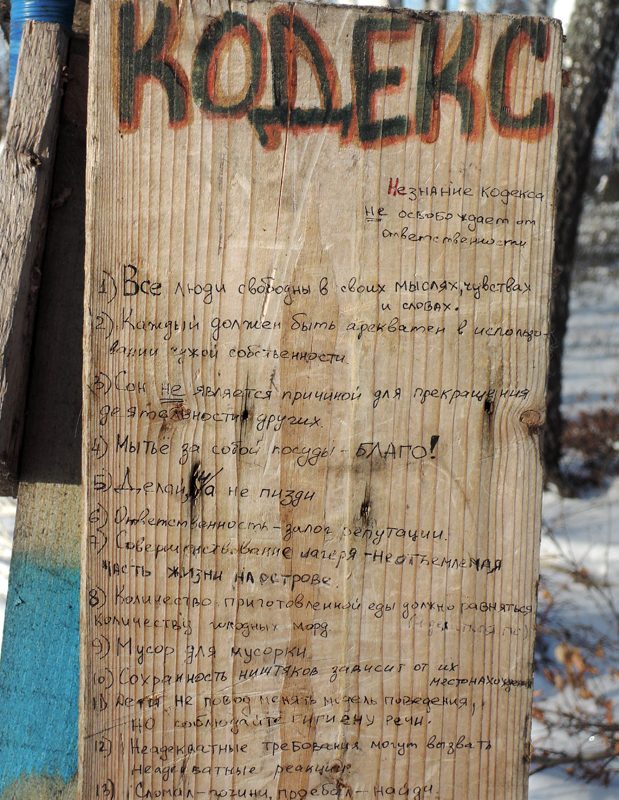 КОДЕКС
Незнание кодекса
не освобождает от
ответственности
1) Все люди свободны в своих мыслях, чувствах
и словах.
2) Каждый должен быть адекватен в использо-
вании чужой собственности
3) Сон не является причиной для прекращения
деятельности других.
4) Мытьё за собой посуды - БЛАГО!
5) Делай, а не пизди
6) Ответственность - залог репутации.
7) Совершенствование лагеря - неотъемлемая
часть жизни на острове.
8) Количество приготовленной еды должно равняться
количеству голодных морд
9) Мусор для мусорки.
10) Сохранность ништяков зависит от их
местонахождения
11) Дети не повод менять модель поведения,
но соблюдайте гигиену речи.
12) Неадекватные требования могут вызвать
неадекватные реакции
13) Сломал - почини, проебал - найди.